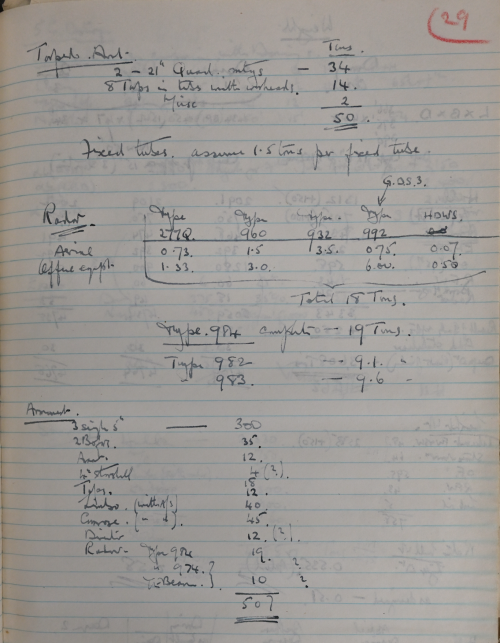 29
Torpedo Armt.
Tons.
2 - 21" Quad. mtgs - 34
8 Torps in tubes with warheads. 14.
Misc 2
50.
Fixed tubes. assume 1.5 tons per fixed tube.
G.D.S.3.
Radar. Type Type Type. Type HDWS.
277Q. 960 932 992
Aerial 0.73. 1.5 3.5. 0.75. 0.07.
Office eqpt. 1.33. 3.0. 6.00. 0.50
Total 18 Tons.
Type. 984 complete - 19 Tons.
Type 982 - 9.1. "
" 983. - 9.6 "
Armament.
3 single 5" 300
2 Bofors. 35.
Amt. 12.
4" starshell 4 (?)
18
Torps. 12.
Limbo. (with A/S) 40
45
12. (?)
Radar - Type 984 19.
" 974. } ?
Beacon. } 10 ?
507